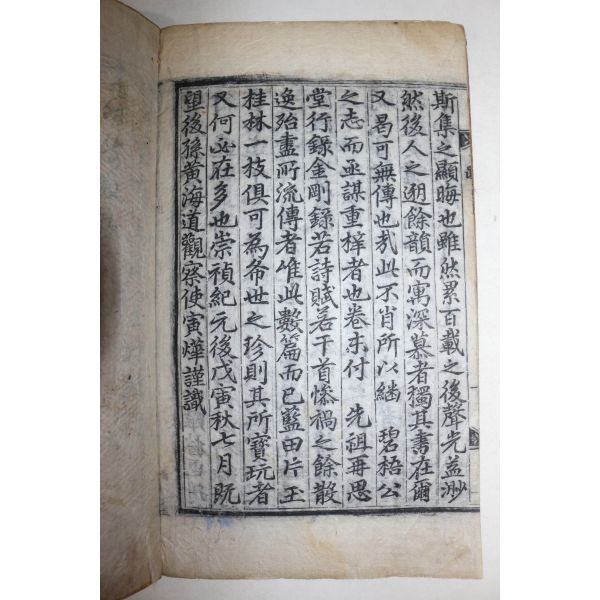 斯集之顯晦也雖然累百載之後聲光益渺
然後人之遡餘韻而寓深慕者獨其書在爾
又曷可無傳也哉此不肖所以繼 碧梧公
之志而亟謀重梓者也卷末付 先祖再思
堂行錄金剛錄若詩賦若干首慘禍之餘散
逸殆盡所流傳者唯此數篇而已藍田片玉
桂林一枝俱可為希世之珍則其所寶玩者
又何必在多也崇禎紀元後戊寅秋七月旣
望後孫黃海道觀察使寅燁謹識